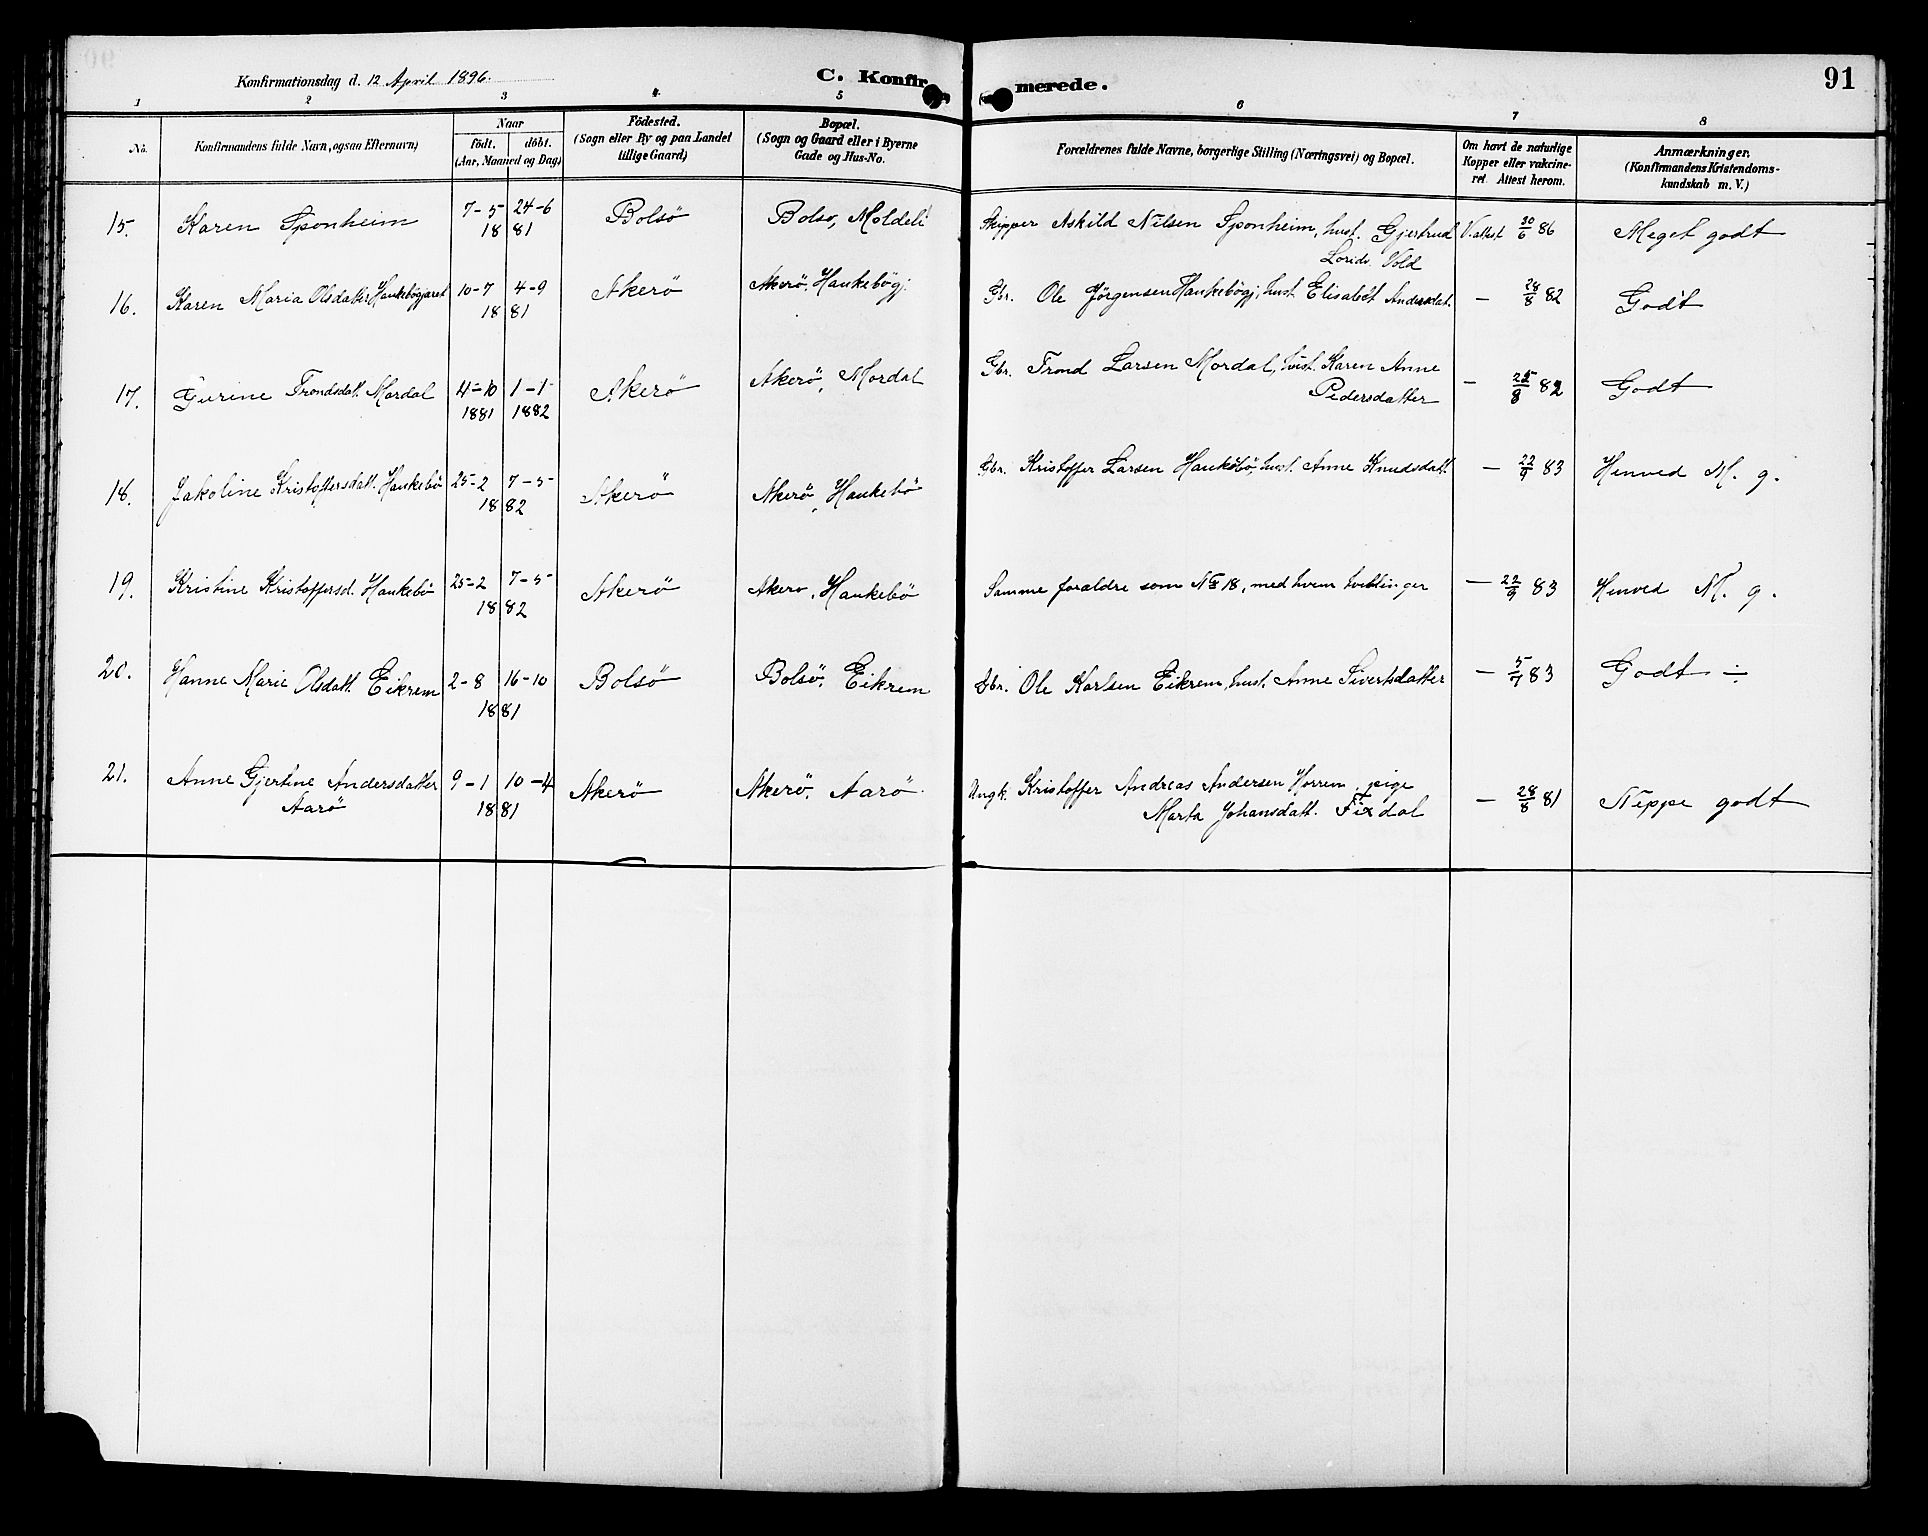 Konfirmationsdag d. 12 April 1896.
C. Konfirmerede.
91
1 2 3 4 5 6 7 8
No.
Konfirmandens fulde Navn, (ogsaa Efternavn)
Naar
födt. döbt.
(Aar, Maaned og Dag)
Födested.
(Sogn eller By og paa Landet
tillige Gaard)
Bopæl.
(Sogn og Gaard eller i Byerne
Gade og Hus-No.
Forældrenes fulde Navne, borgerlige Stilling (Næringsvei) og Bopæl.
Om havt de naturlige
Kopper eller vakcine-
ret. Attest herom.
Anmærkninger.
(Konfirmandens Kristendoms-
kundskab m. V.)
15. Karen Sponheim 7-5 24-6 Bolsö Bolsö, Moldeli Skipper Askild Nilsen Sponheim, hust. Gjertrud V.attest 30/6 86 Meget godt
18 81 Vold
16. Karen Maria Olsdatter Haukebögjaret 10-7 4-9 Akerö Akerö, Haukebögj. Gbr. Ole Jörgensen Haukebögj, hust Elisabet Andersdat. — 28/8 82 Godt
18 81
17. Gurine Trondsdat. Mordal 4-10 1-1 Akerö Akerö, Mordal Gbr. Trond Larsen Mordal, hust. Karen Anne — 25/8 82 Godt
1881 1882 Pedersdatter
18. Jakoline Kristoffersdatt. Haukebö 25-2 7-5 Akerö Akerö, Haukebö Gbr. Kristoffer Larsen Haukebö, hust. Anne Knudsdatt. — 22/9 83 Henved M. g.
18 82
19. Kristine Kristoffersd. Haukebö 25-2 7-5 Akerö Akero, Haukebö Samme foraldre som No 18, med hvem tvillinger — 22/9 83 Henved M. g.
18 82
20. Hanne Marie Olsdatt. Eikrem 2-8 16-10 Bolsö Bolsö, Eikrem Gbr. Ole Karlsen Eikrem, hust. Anne Sivertsdatter — 5/7 83 Godt ÷
18 81
21. Anne Gjertine Andersdatter 9-1 10-4 Akerö Akerö, Aarö Ungk. Kristoffer Andreas Andersen Horrem, pige — 28/8 81 Neppe godt
Aarö 18 81 Marta Johansdatt. Fixdal